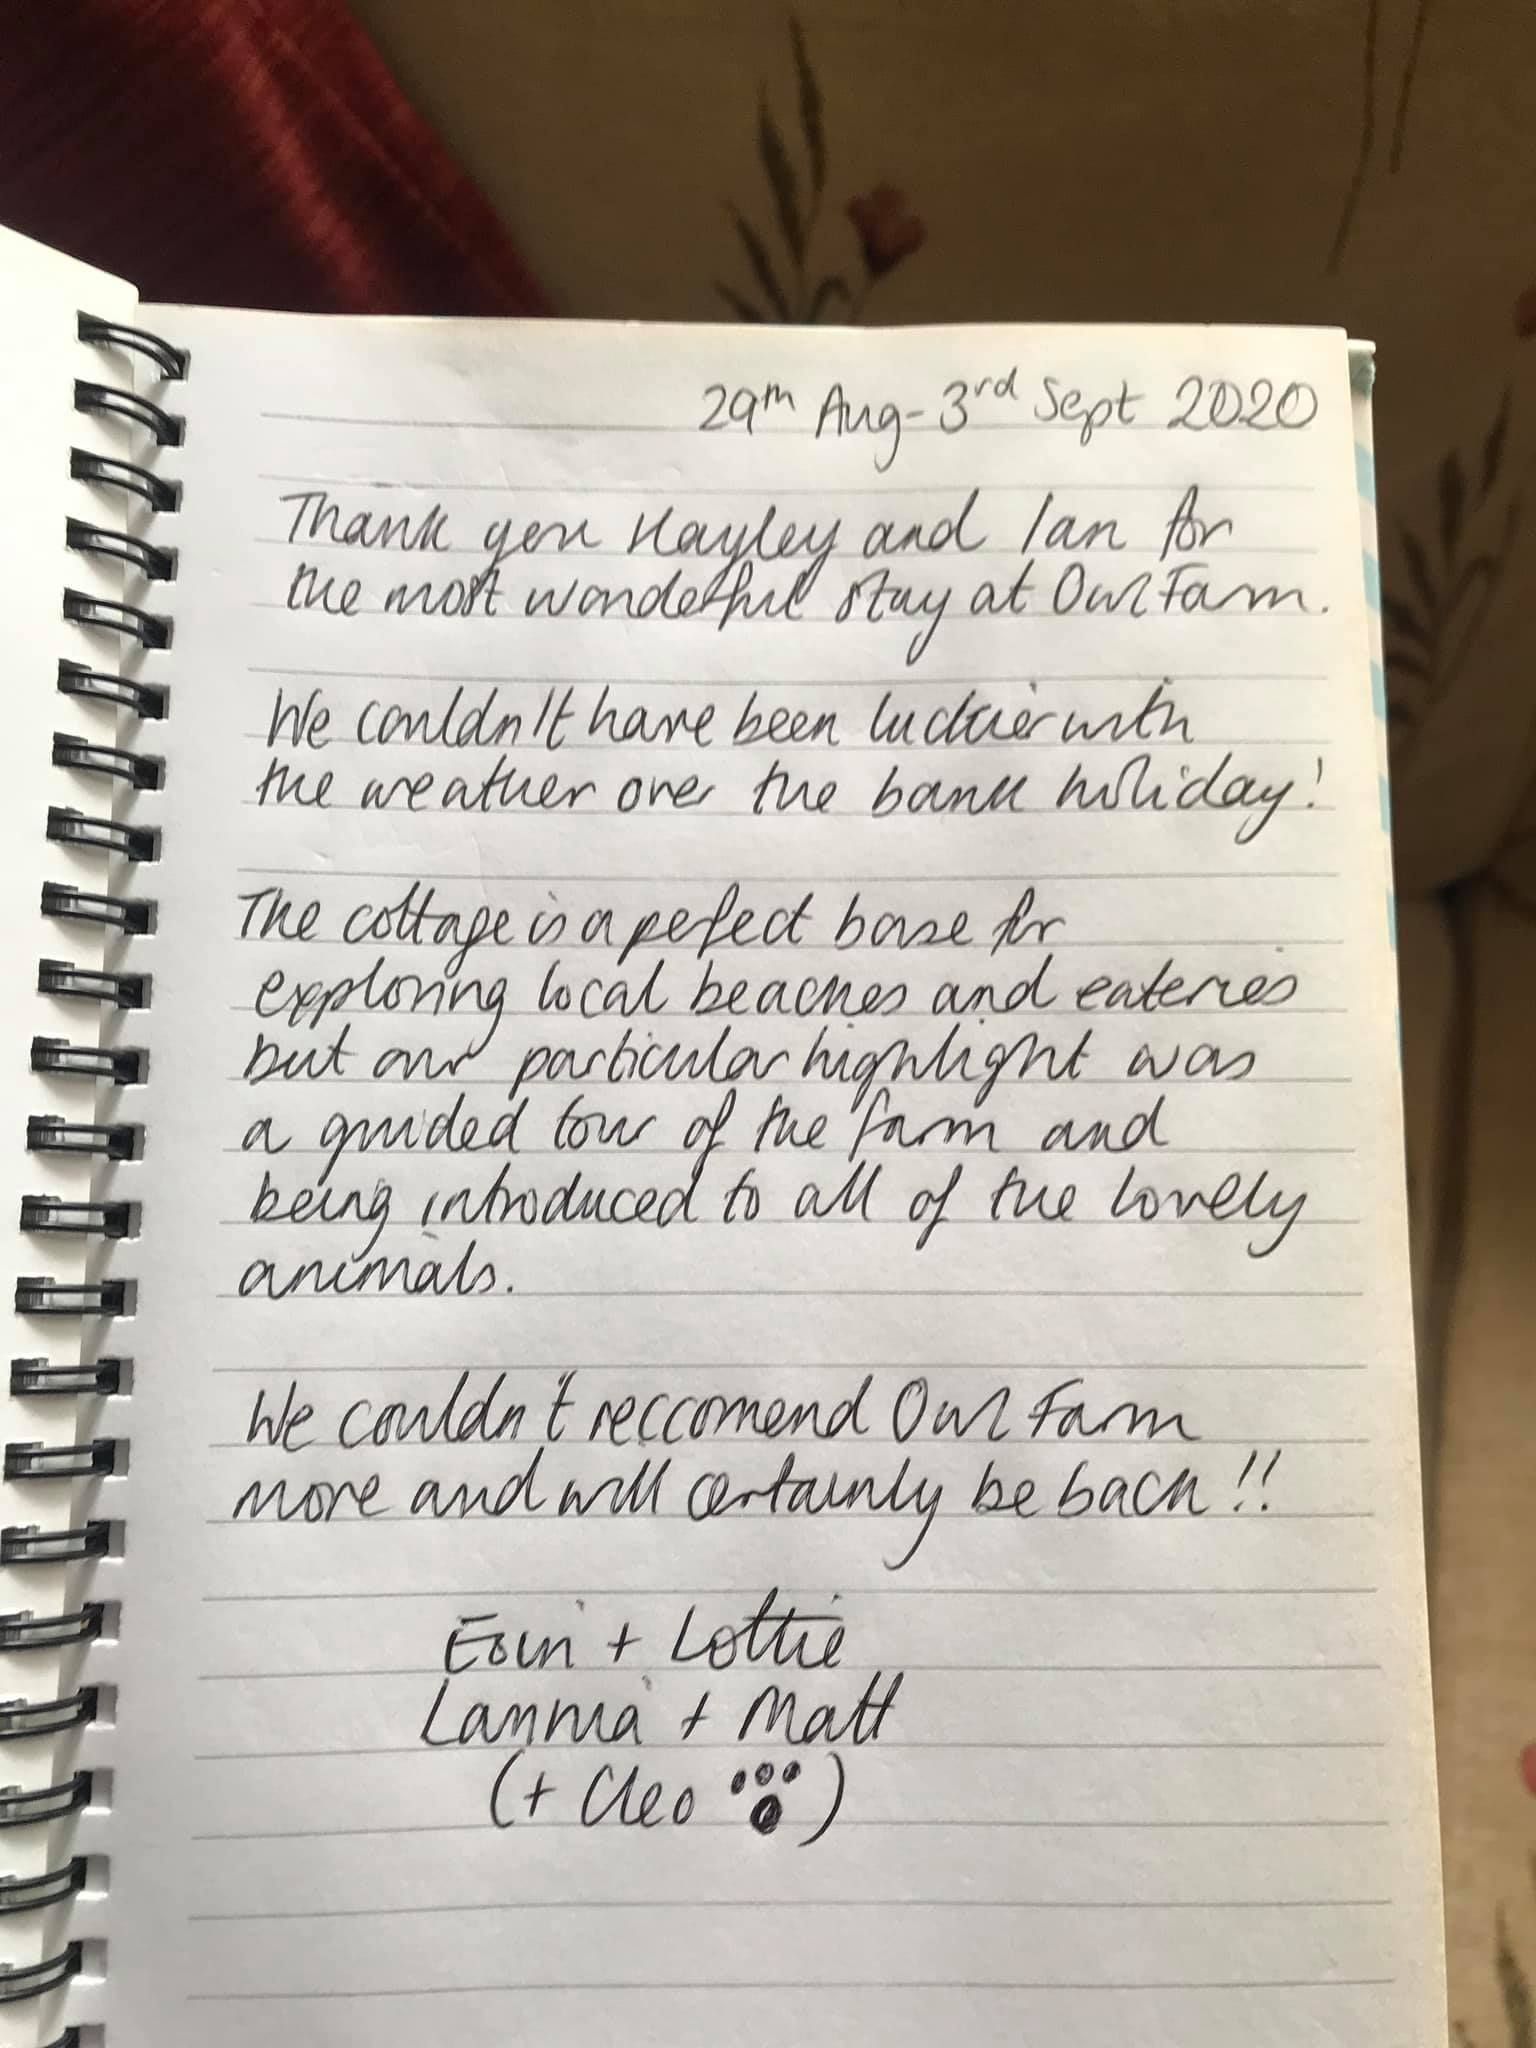 29th Aug - 3rd Sept 2020
Thank you Hayley and Ian for
the most wonderful stay at Owl Farm.
We couldn't have been luckier with
the weather over the bank holiday!
The cottage is a perfect base for
exploring local beaches and eateries
but our particular highlight was
a guided tour of the farm and
being introduced to all of the lovely
animals.
We couldn't reccomend Owl Farm
more and will certainly be back!!
Eoin + Lottie
+ Matt
(+ Cleo )